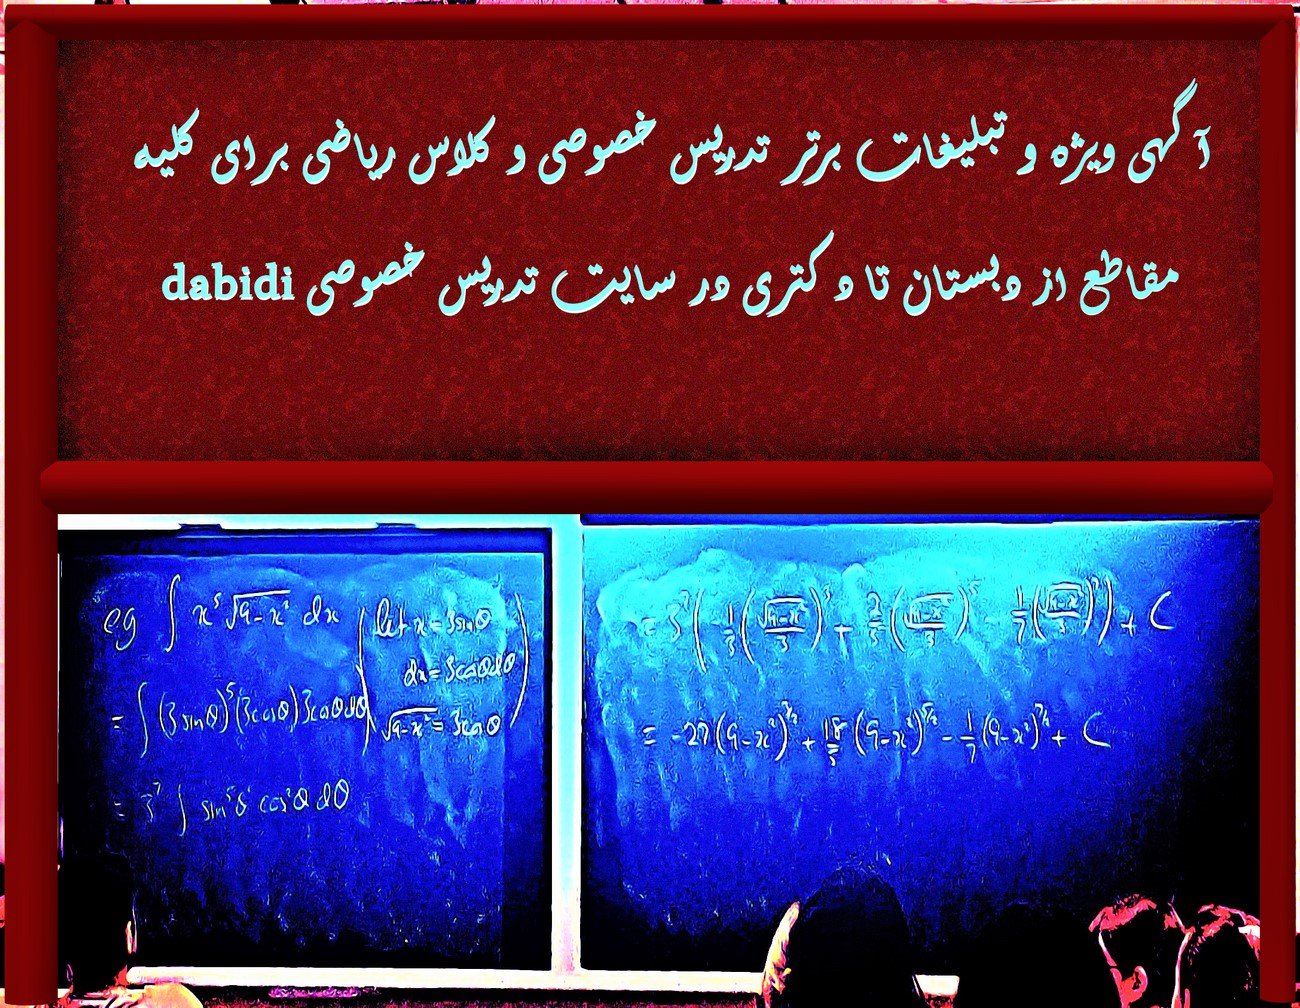 آگهی ویژه و تبلیغات برتر تدریس خصوصی و کلاس ریاضی برای کلیه
مقاطع از دبستان تا دکتری در سایت تدریس خصوصی dabidi
eg ∫ x⁵ √(9-x²) dx ( let x = 3sinθ
dx = 3cosθdθ
= ∫ (3sinθ)⁵ (3cosθ) 3cosθdθ √(9-x²) = 3cosθ )
= 3⁷ ∫ sin⁵θ cos²θ dθ
= 3⁷ ( -1/3 (√(9-x²)/3)³ + 2/5 (√(9-x²)/3)⁵ - 1/7 (√(9-x²)/3)⁷ ) + C
= -27 (9-x²)^3/2 + 18/5 (9-x²)^5/2 - 1/7 (9-x²)^7/2 + C